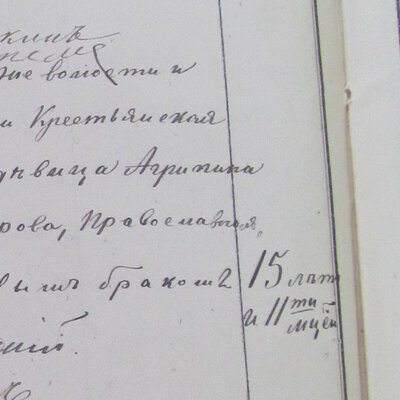 кинъ
волости и
и Крестьянская
вица Агрипина
рова, Православная,
вымъ бракомъ 15 лѣтъ
и 11ти мцей
ский.